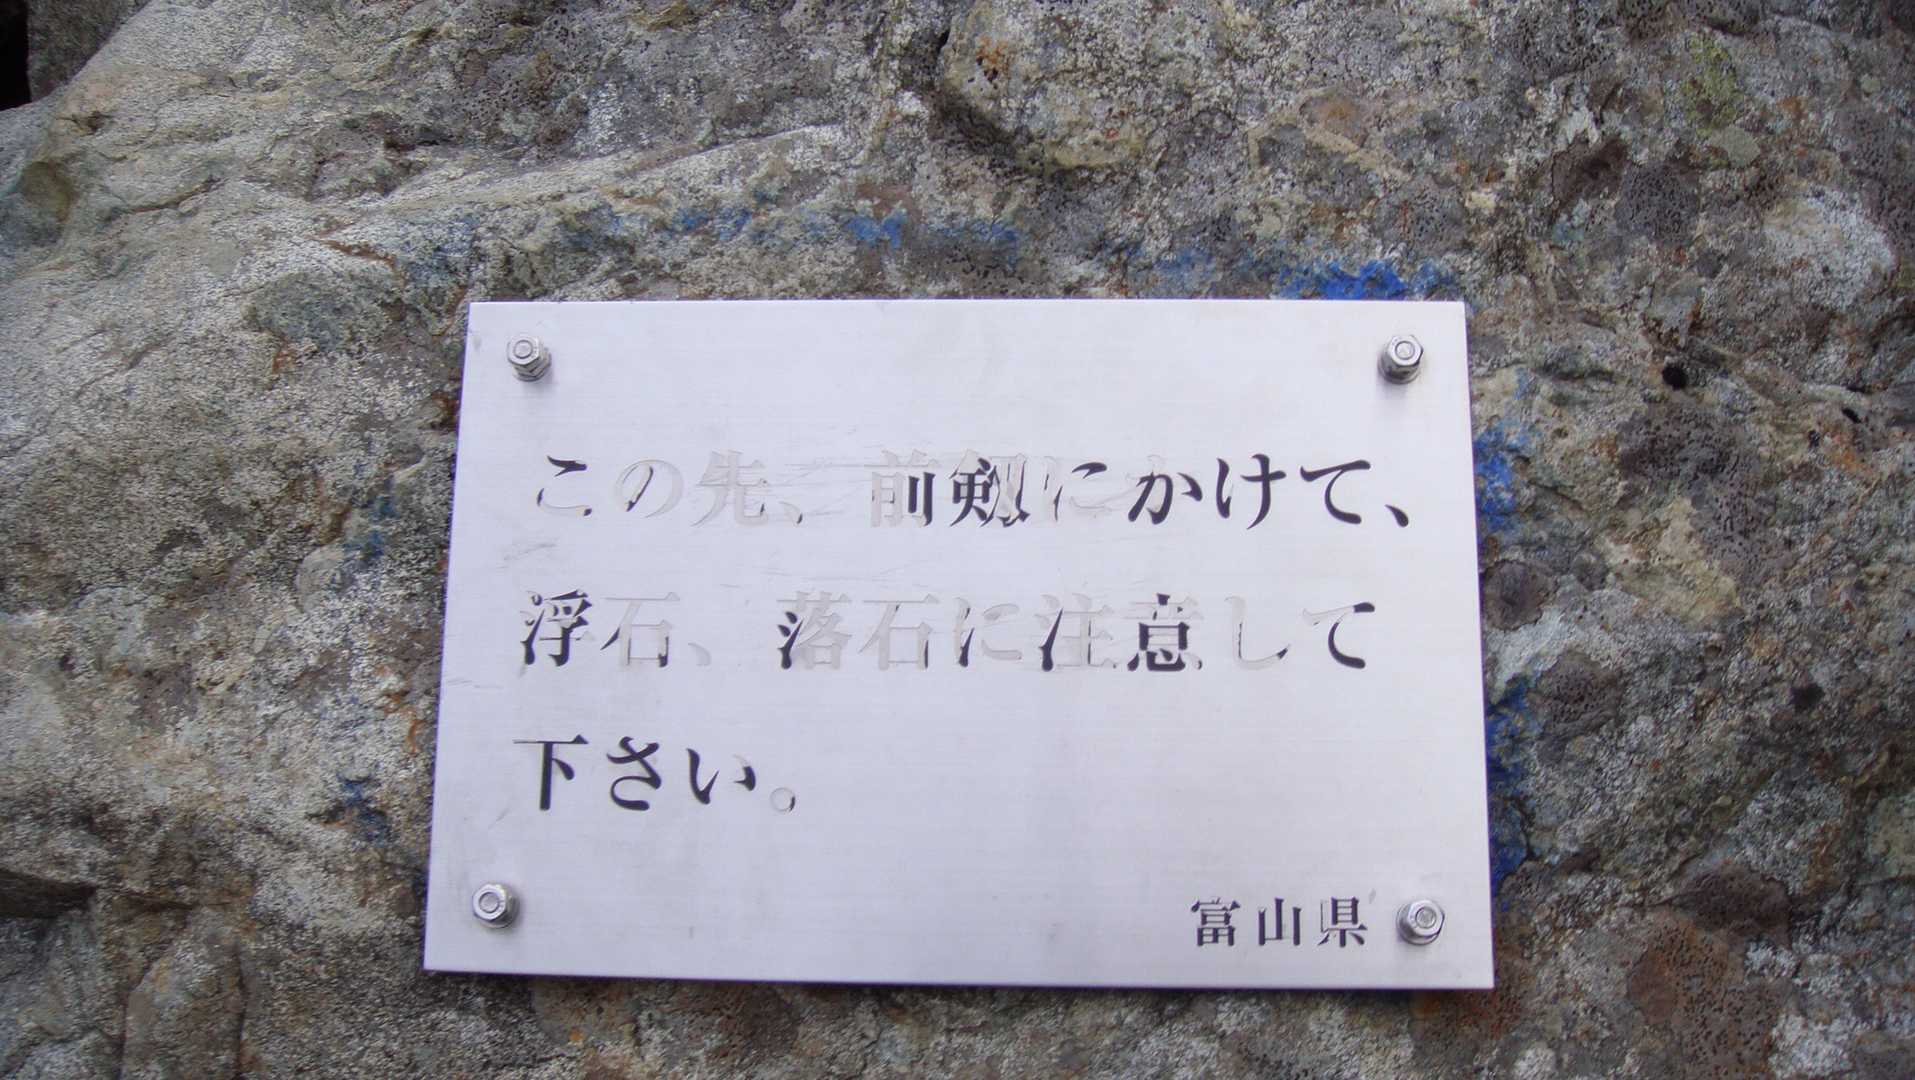 この先、前剱にかけて、
浮石、落石に注意して
下さい。
富山県